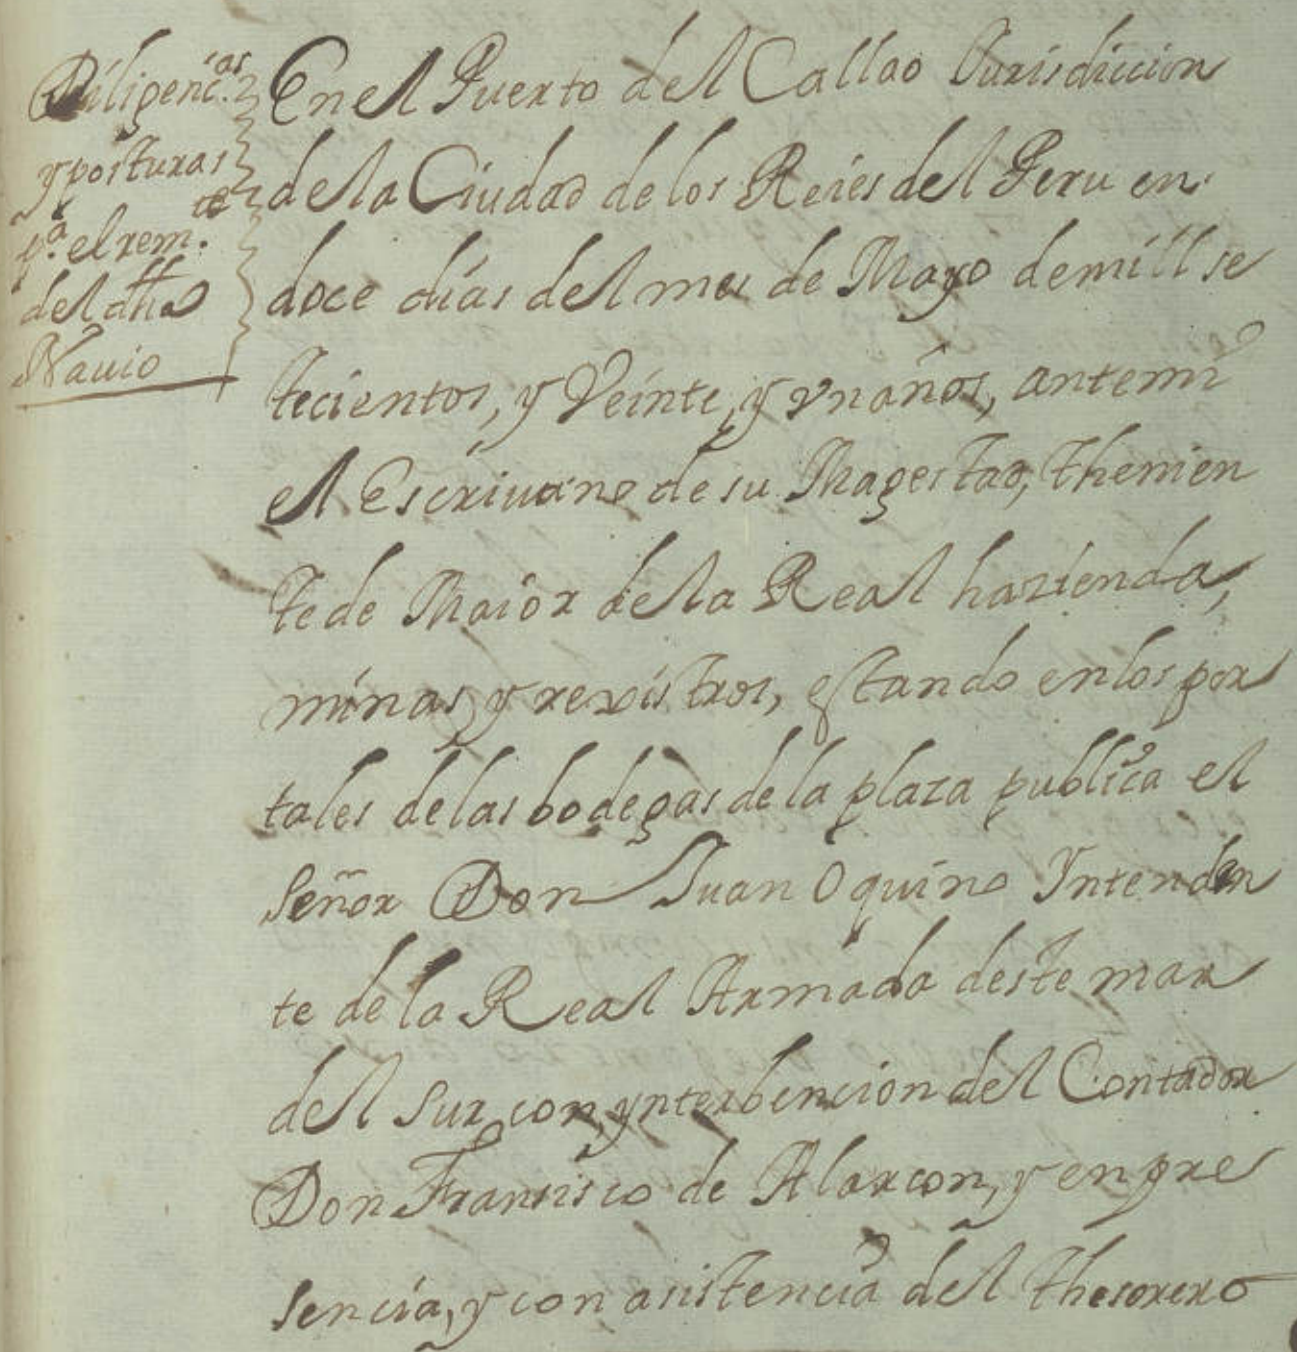 Diligenc.as
y posturas
p.a el rem.te
del dho
Navio
En el Puerto del Callao Jurisdiccion
de la Ciudad de los Reies del Peru en
doce dias del mes de Mayo de mill se
tecientos, y Veinte, y vn años, ante mi
el Escrivano de su Magestad, Thenien
te de Maior de la Real hazienda,
minas y rexistros, estando en los por
tales de las bodegas de la plaza publica el
Señor Don Juan Oquino Yntenden
te de la Real Armada deste mar
del Sur con ynterbencion del Contador
Don Fransisco de Alarcon, y en pre
sencia, y con asistencia del Thesorero